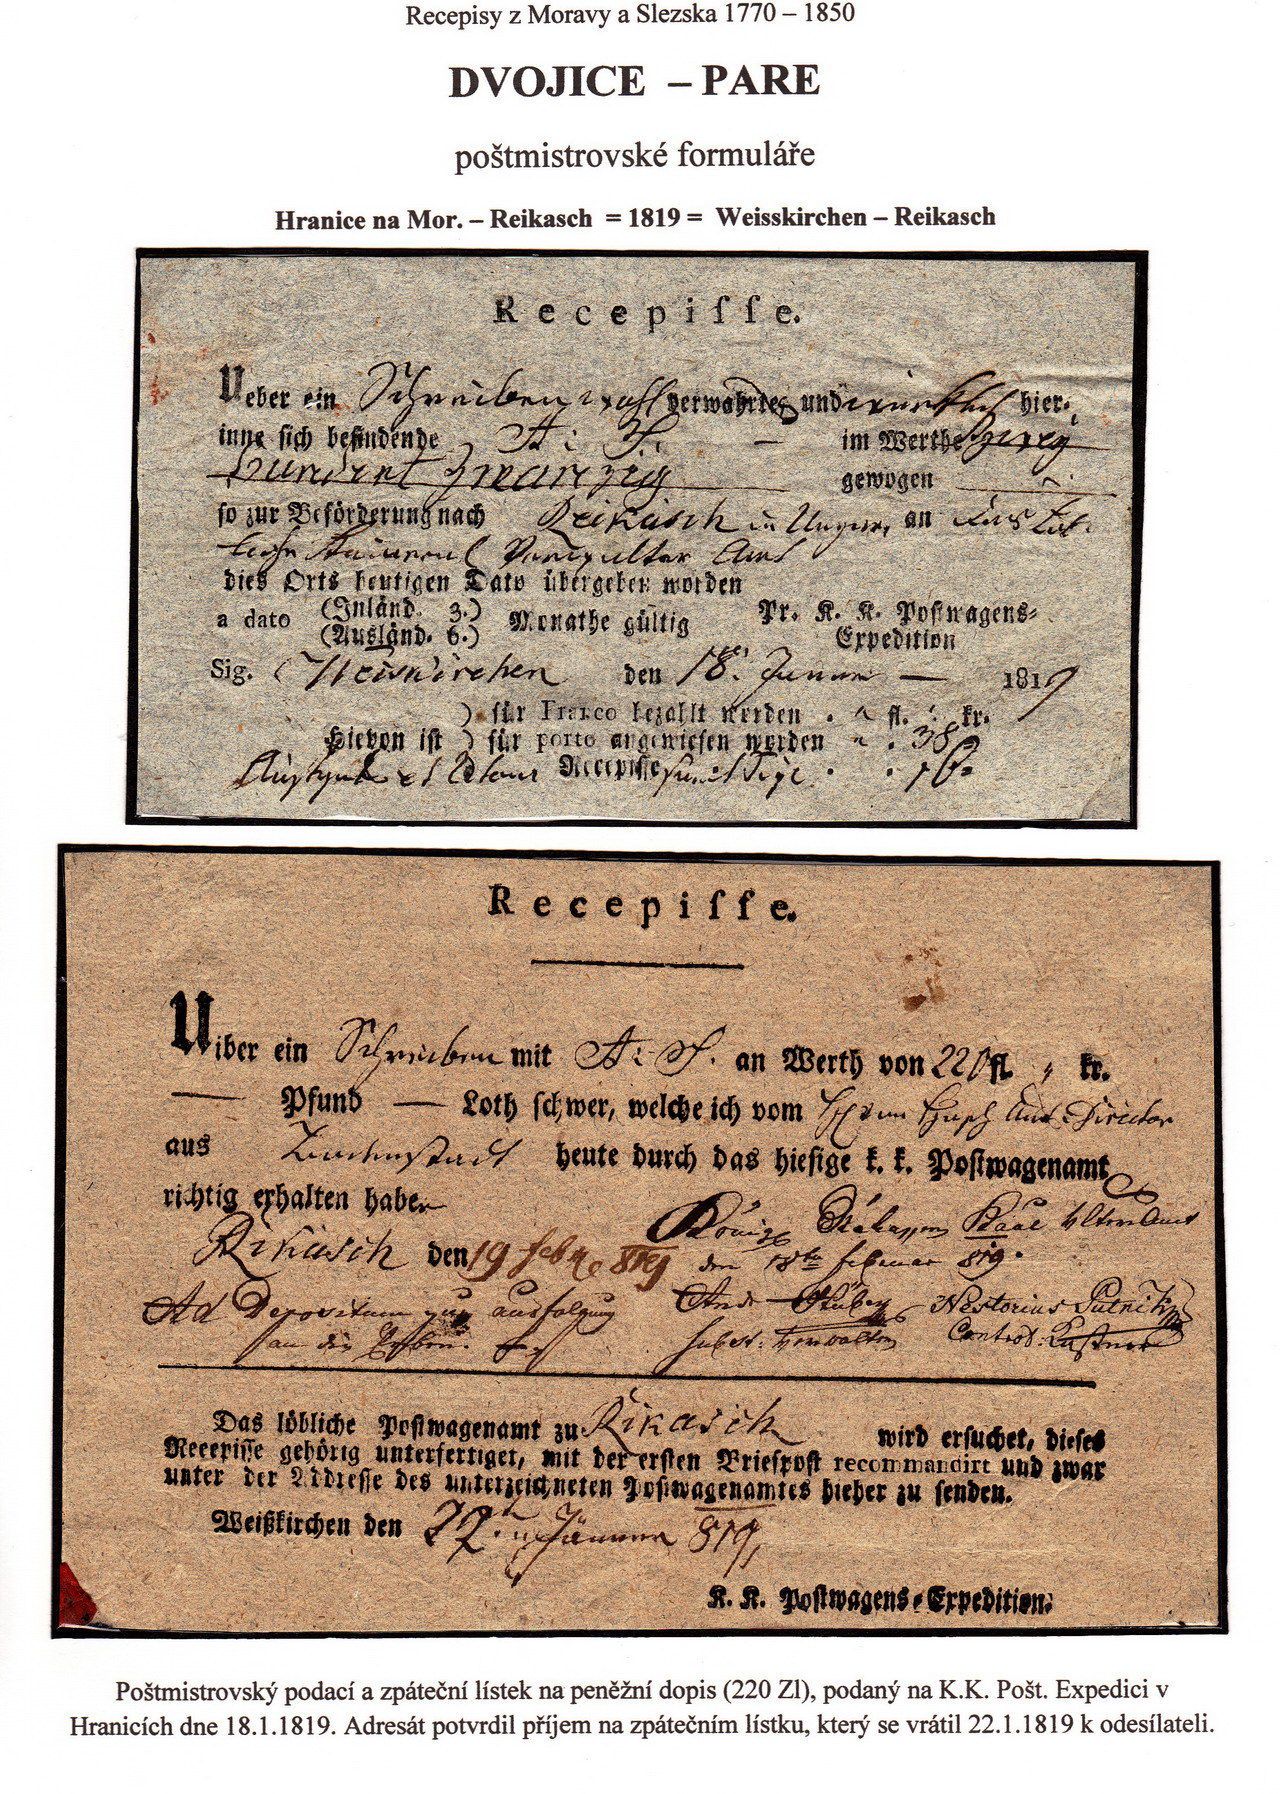 Recepisy z Moravy a Slezska 1770 – 1850
DVOJICE – PARE
poštmistrovské formuláře
Hranice na Mor. – Reikasch = 1819 = Weisskirchen – Reikasch
Recepiſſe.
Ueber ein Schreiben wohl verwahrtes und wirklich hier-
inne ſich befindende A: S. — im Werthe zwey
hundert zwanzig gewogen
ſo zur Beförderung nach Reikasch in Ungarn, an das
dies Orts heutigen Dato übergeben worden
a dato (Inländ. 3.) Monathe gültig Pr. K. K. Poſtwagens-
(Ausländ. 6.) Expedition
Sig. Weiskirchen den 18. 1819
) für Franco bezahlt werden . fl. kr.
Hievon iſt ) für porto angewieſen werden . 38
Recepiſſe
Recepiſſe.
Uiber ein Schreiben mit A: S. an Werth von 220 fl. „ kr.
— Pfund — Loth ſchwer, welche ich vom Director
aus heute durch das hieſige k. k. Poſtwagenamt
richtig erhalten habe
Rikasch den 19 febr 819 König
den 18 februar 819.
Ad Depositum zur ausfolgung Nestorius
an die Verwalter Control.
Das löbliche Poſtwagenamt zu Rikasch wird erſuchet, dieſes
Recepiſſe gehörig unterfertiget, mit der erſten Briefpoſt recommandirt und zwar
unter der Addreſſe des unterzeichneten Poſtwagenamtes hieher zu ſenden.
Weißkirchen den 22. Jänner 819
K. K. Poſtwagens-Expedition.
Poštmistrovský podací a zpáteční lístek na peněžní dopis (220 Zl), podaný na K.K. Pošt. Expedici v
Hranicích dne 18.1.1819. Adresát potvrdil příjem na zpátečním lístku, který se vrátil 22.1.1819 k odesílateli.